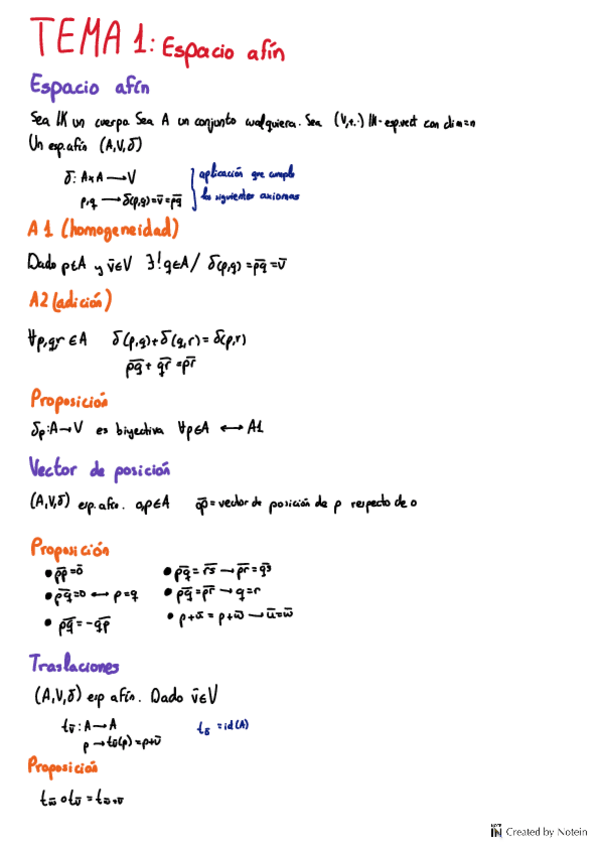 TEMA 1: Espacio afín
Espacio afín
Sea IK un cuerpo. Sea A un conjunto cualquiera. Sea (V,+,·) IK-esp.vect con dim=n
Un esp.afín (A,V,δ)
δ: A×A → V
aplicación que cumple
p,q → δ(p,q)=v̄=p̄q̄
los siguientes axiomas
A1 (homogeneidad)
Dado p∈A y v̄∈V ∃!q∈A/ δ(p,q)=p̄q̄=v̄
A2 (adición)
∀p,q,r ∈A δ(p,q)+δ(q,r)=δ(p,r)
p̄q̄ + q̄r̄ = p̄r̄
Proposición
δp:A→V es biyectiva ∀p∈A ↔ A1
Vector de posición
(A,V,δ) esp.afín. o,p∈A ōp̄=vector de posición de p respecto de o
Proposición
• p̄p̄=0̄ • p̄q̄=r̄s̄ → p̄r̄=q̄s̄
• p̄q̄=0 ↔ p=q • p̄q̄=p̄r̄ → q=r
• p̄q̄=-q̄p̄ • p+ū = p+w̄ → ū=w̄
Traslaciones
(A,V,δ) esp afín. Dado v̄∈V
tv̄: A→A t0̄ =id(A)
p→tv̄(p)=p+v̄
Proposición
tw̄ o tv̄ = tw̄+v̄
NOTE IN Created by Notein